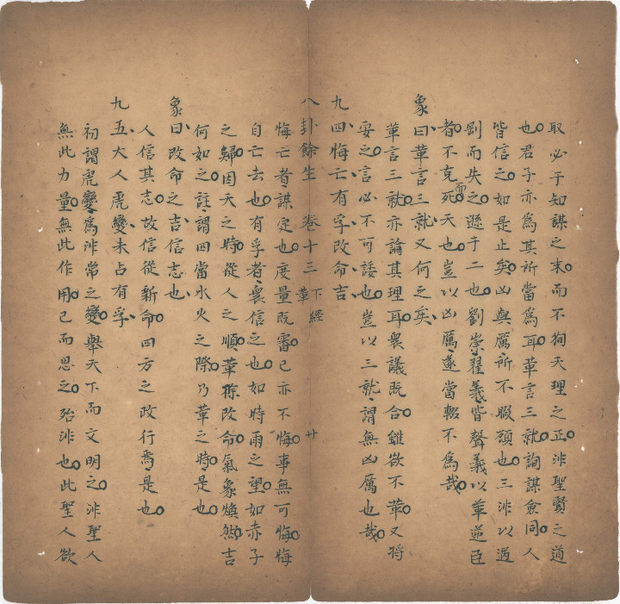 取必于知謀之末而不徇天理之正非聖賢之道
也君子亦為其所當為耳革言三就詢謀僉同人
皆信之如是止矣凶與厲所不暇顧也三非以過
劉而失之遜于二也劉崇翟義皆聲義以革逆臣
者不克而死天也豈以凶厲遂當輟不為哉
象曰革言三就又何之矣
革言三就亦論其理耳衆議既合雖欲不革又將
妄之言必不可諉也豈以三就謂無凶厲也哉
九四悔亡有孚改命吉
八卦餘生 卷十三 下經 革 廿
悔亡者謀定也度量既審已亦不悔事無可悔悔
自亡去也有孚者衆信之也如時雨之望如赤子
之歸因天之時從人之順革稱改命氣象煥然吉
何如之註謂四當水火之際乃革之時是也
象曰改命之吉信志也
人信其志故信從新命四方之政行焉是也
九五大人虎變未占有孚
初謂虎變為非常之變舉天下而文明之非聖人
無此力量無此作用已而思之殆非也此聖人欲